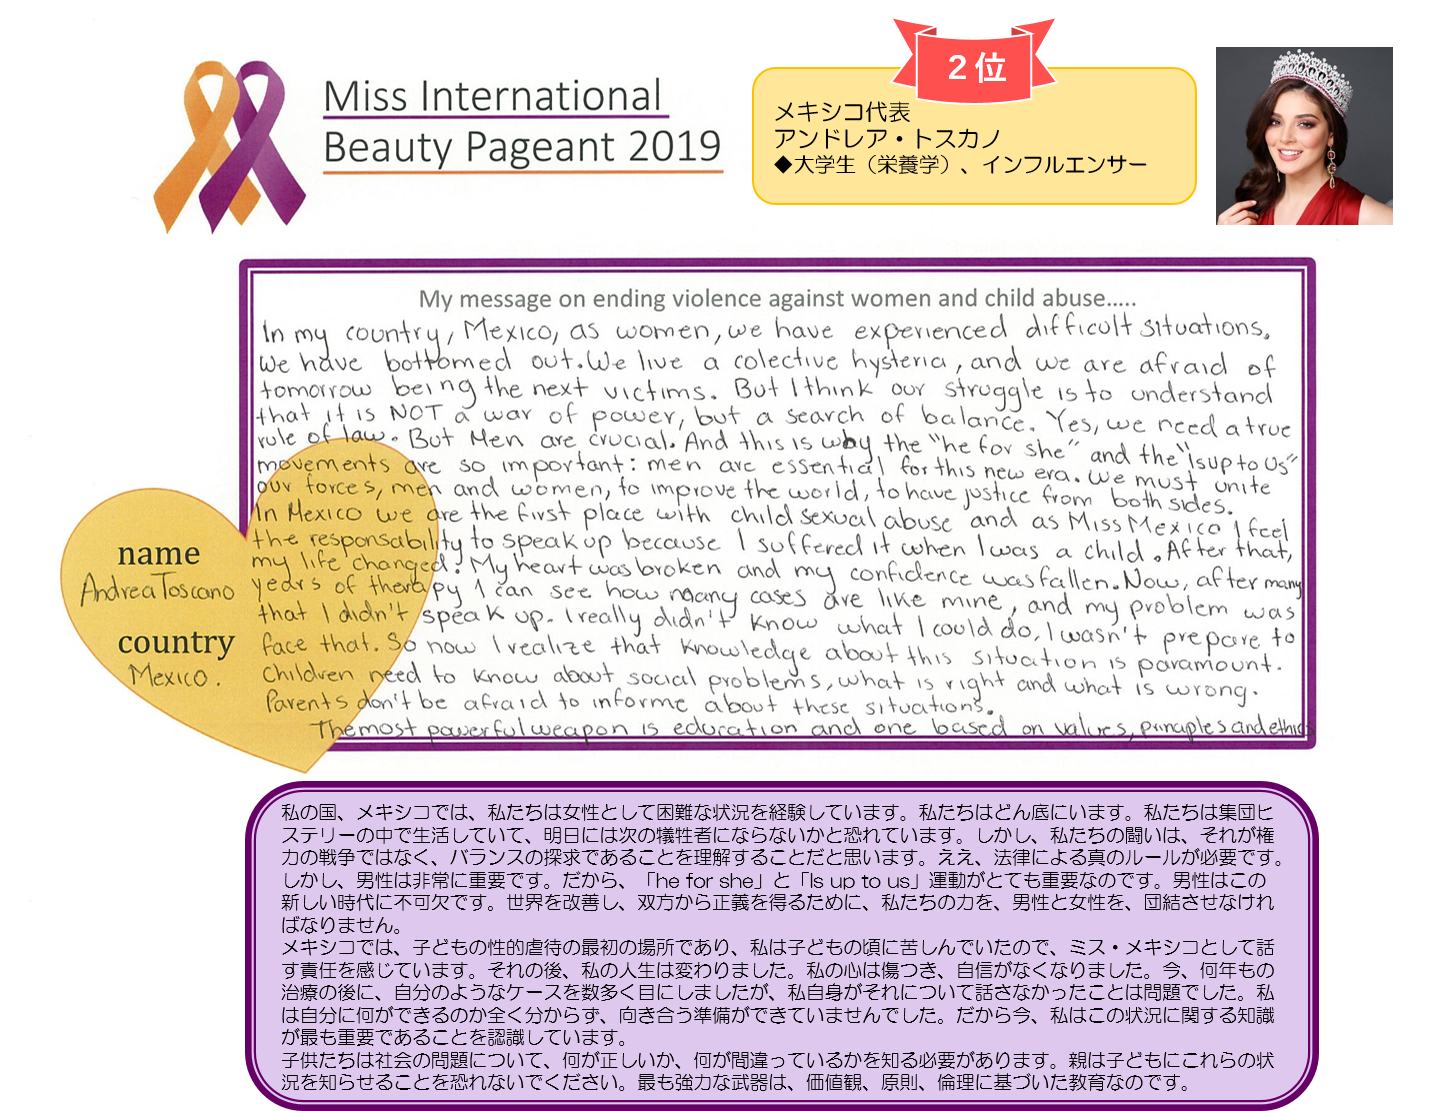 Miss International
Beauty Pageant 2019
2位
メキシコ代表
アンドレア・トスカノ
◆大学生（栄養学）、インフルエンサー
My message on ending violence against women and child abuse.....
In my country, Mexico, as women, we have experienced difficult situations.
We have bottomed out. We live a colective hysteria, and we are afraid of
tomorrow being the next victims. But I think our struggle is to understand
that it is NOT a war of power, but a search of balance. Yes, we need a true
rule of law. But Men are crucial. And this is why the "he for she" and the "Is up to Us"
movements are so important: men are essential for this new era. We must unite
our forces, men and women, to improve the world, to have justice from both sides.
In Mexico we are the first place with child sexual abuse and as Miss Mexico I feel
the responsability to speak up because I suffered it when I was a child. After that,
my life changed. My heart was broken and my confidence was fallen. Now, after many
years of therapy I can see how many cases are like mine, and my problem was
that I didn't speak up. I really didn't know what I could do, I wasn't prepare to
face that. So now I realize that knowledge about this situation is paramount.
Children need to know about social problems, what is right and what is wrong.
Parents don't be afraid to informe about these situations.
The most powerful weapon is education and one based on values, principles and ethics
name
Andrea Toscano
country
Mexico.
私の国、メキシコでは、私たちは女性として困難な状況を経験しています。私たちはどん底にいます。私たちは集団ヒ
ステリーの中で生活していて、明日には次の犠牲者にならないかと恐れています。しかし、私たちの闘いは、それが権
力の戦争ではなく、バランスの探求であることを理解することだと思います。ええ、法律による真のルールが必要です。
しかし、男性は非常に重要です。だから、「he for she」と「Is up to us」運動がとても重要なのです。男性はこの
新しい時代に不可欠です。世界を改善し、双方から正義を得るために、私たちの力を、男性と女性を、団結させなけれ
ばなりません。
メキシコでは、子どもの性的虐待の最初の場所であり、私は子どもの頃に苦しんでいたので、ミス・メキシコとして話
す責任を感じています。それの後、私の人生は変わりました。私の心は傷つき、自信がなくなりました。今、何年もの
治療の後に、自分のようなケースを数多く目にしましたが、私自身がそれについて話さなかったことは問題でした。私
は自分に何ができるのか全く分からず、向き合う準備ができていませんでした。だから今、私はこの状況に関する知識
が最も重要であることを認識しています。
子供たちは社会の問題について、何が正しいか、何が間違っているかを知る必要があります。親は子どもにこれらの状
況を知らせることを恐れないでください。最も強力な武器は、価値観、原則、倫理に基づいた教育なのです。